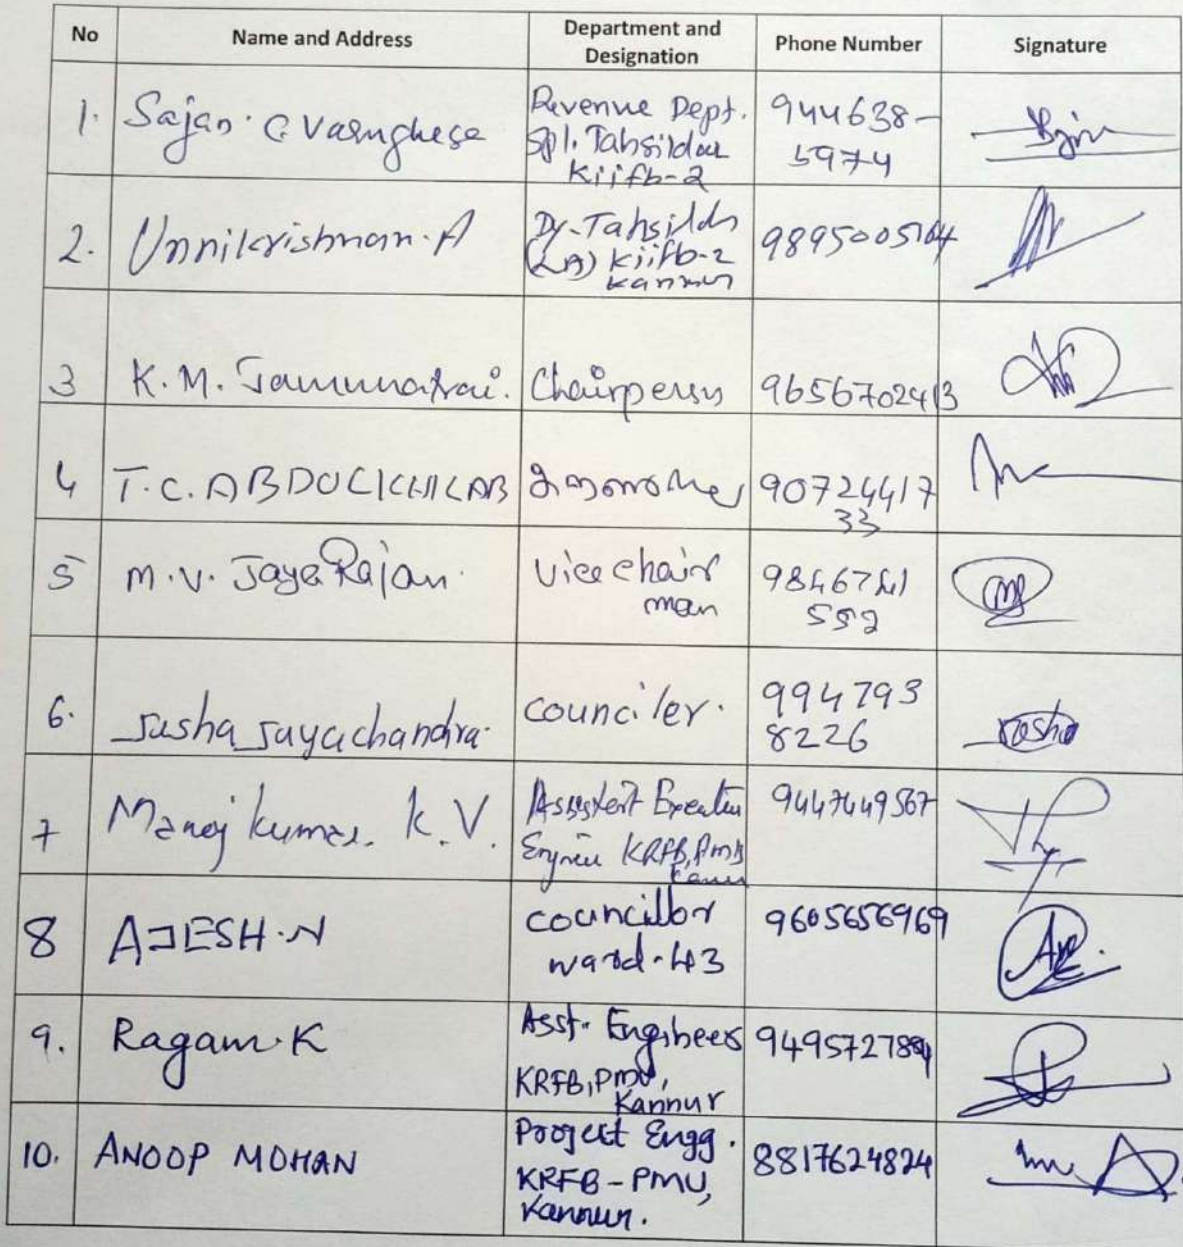 No Name and Address Department and Designation Phone Number Signature
1. Sajan. C Varughese Revenue Dept. Spl. Tahsildar Kiifb-2 944638-5974
2. Unnikrishnan. A Dy. Tahsildr (LA) Kiifb-2 Kannur 9895005164
3 K. M. Jamunarai. Chairpersn 9656702413
4 T. C. 9072441733
5 M. V. JayaRajan. Vice chair man 9846741552
6. Jusha Jayachandra. counciler. 9947938226
7 Manoj kumar. K. V. Assistent KRFB, PMU 9447449567
8 AJESH. N councillor ward-43 9605656969
9. Ragam. K Asst. Engineer KRFB, PMU, Kannur
10. ANOOP MOHAN Project Engg. KRFB-PMU, Kannur. 8817624824